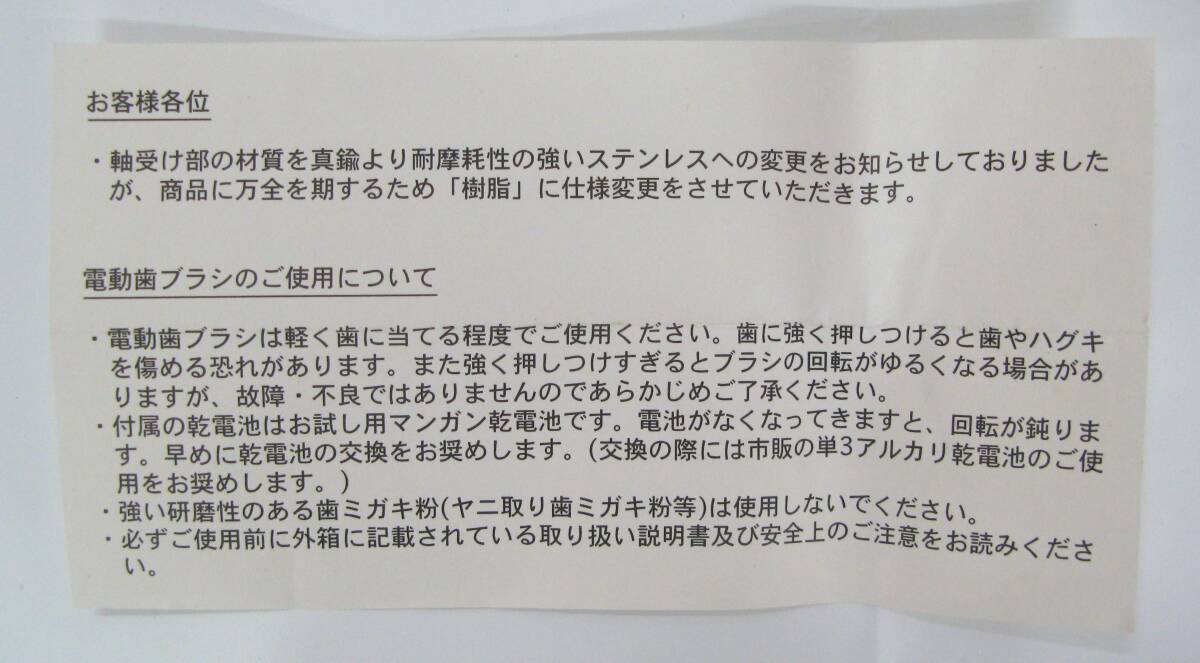 お客様各位
・軸受け部の材質を真鍮より耐摩耗性の強いステンレスへの変更をお知らせしておりました
が、商品に万全を期するため「樹脂」に仕様変更をさせていただきます。
電動歯ブラシのご使用について
・電動歯ブラシは軽く歯に当てる程度でご使用ください。歯に強く押しつけると歯やハグキ
を傷める恐れがあります。また強く押しつけすぎるとブラシの回転がゆるくなる場合があ
りますが、故障・不良ではありませんのであらかじめご了承ください。
・付属の乾電池はお試し用マンガン乾電池です。電池がなくなってきますと、回転が鈍りま
す。早めに乾電池の交換をお奨めします。(交換の際には市販の単3アルカリ乾電池のご使
用をお奨めします。)
・強い研磨性のある歯ミガキ粉(ヤニ取り歯ミガキ粉等)は使用しないでください。
・必ずご使用前に外箱に記載されている取り扱い説明書及び安全上のご注意をお読みくださ
い。